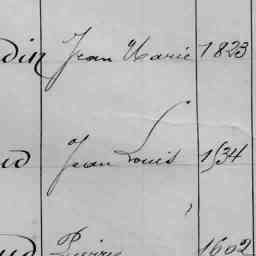 din Jean Marie 1823
ud Jean Louis 1534
ud Pierre 1602